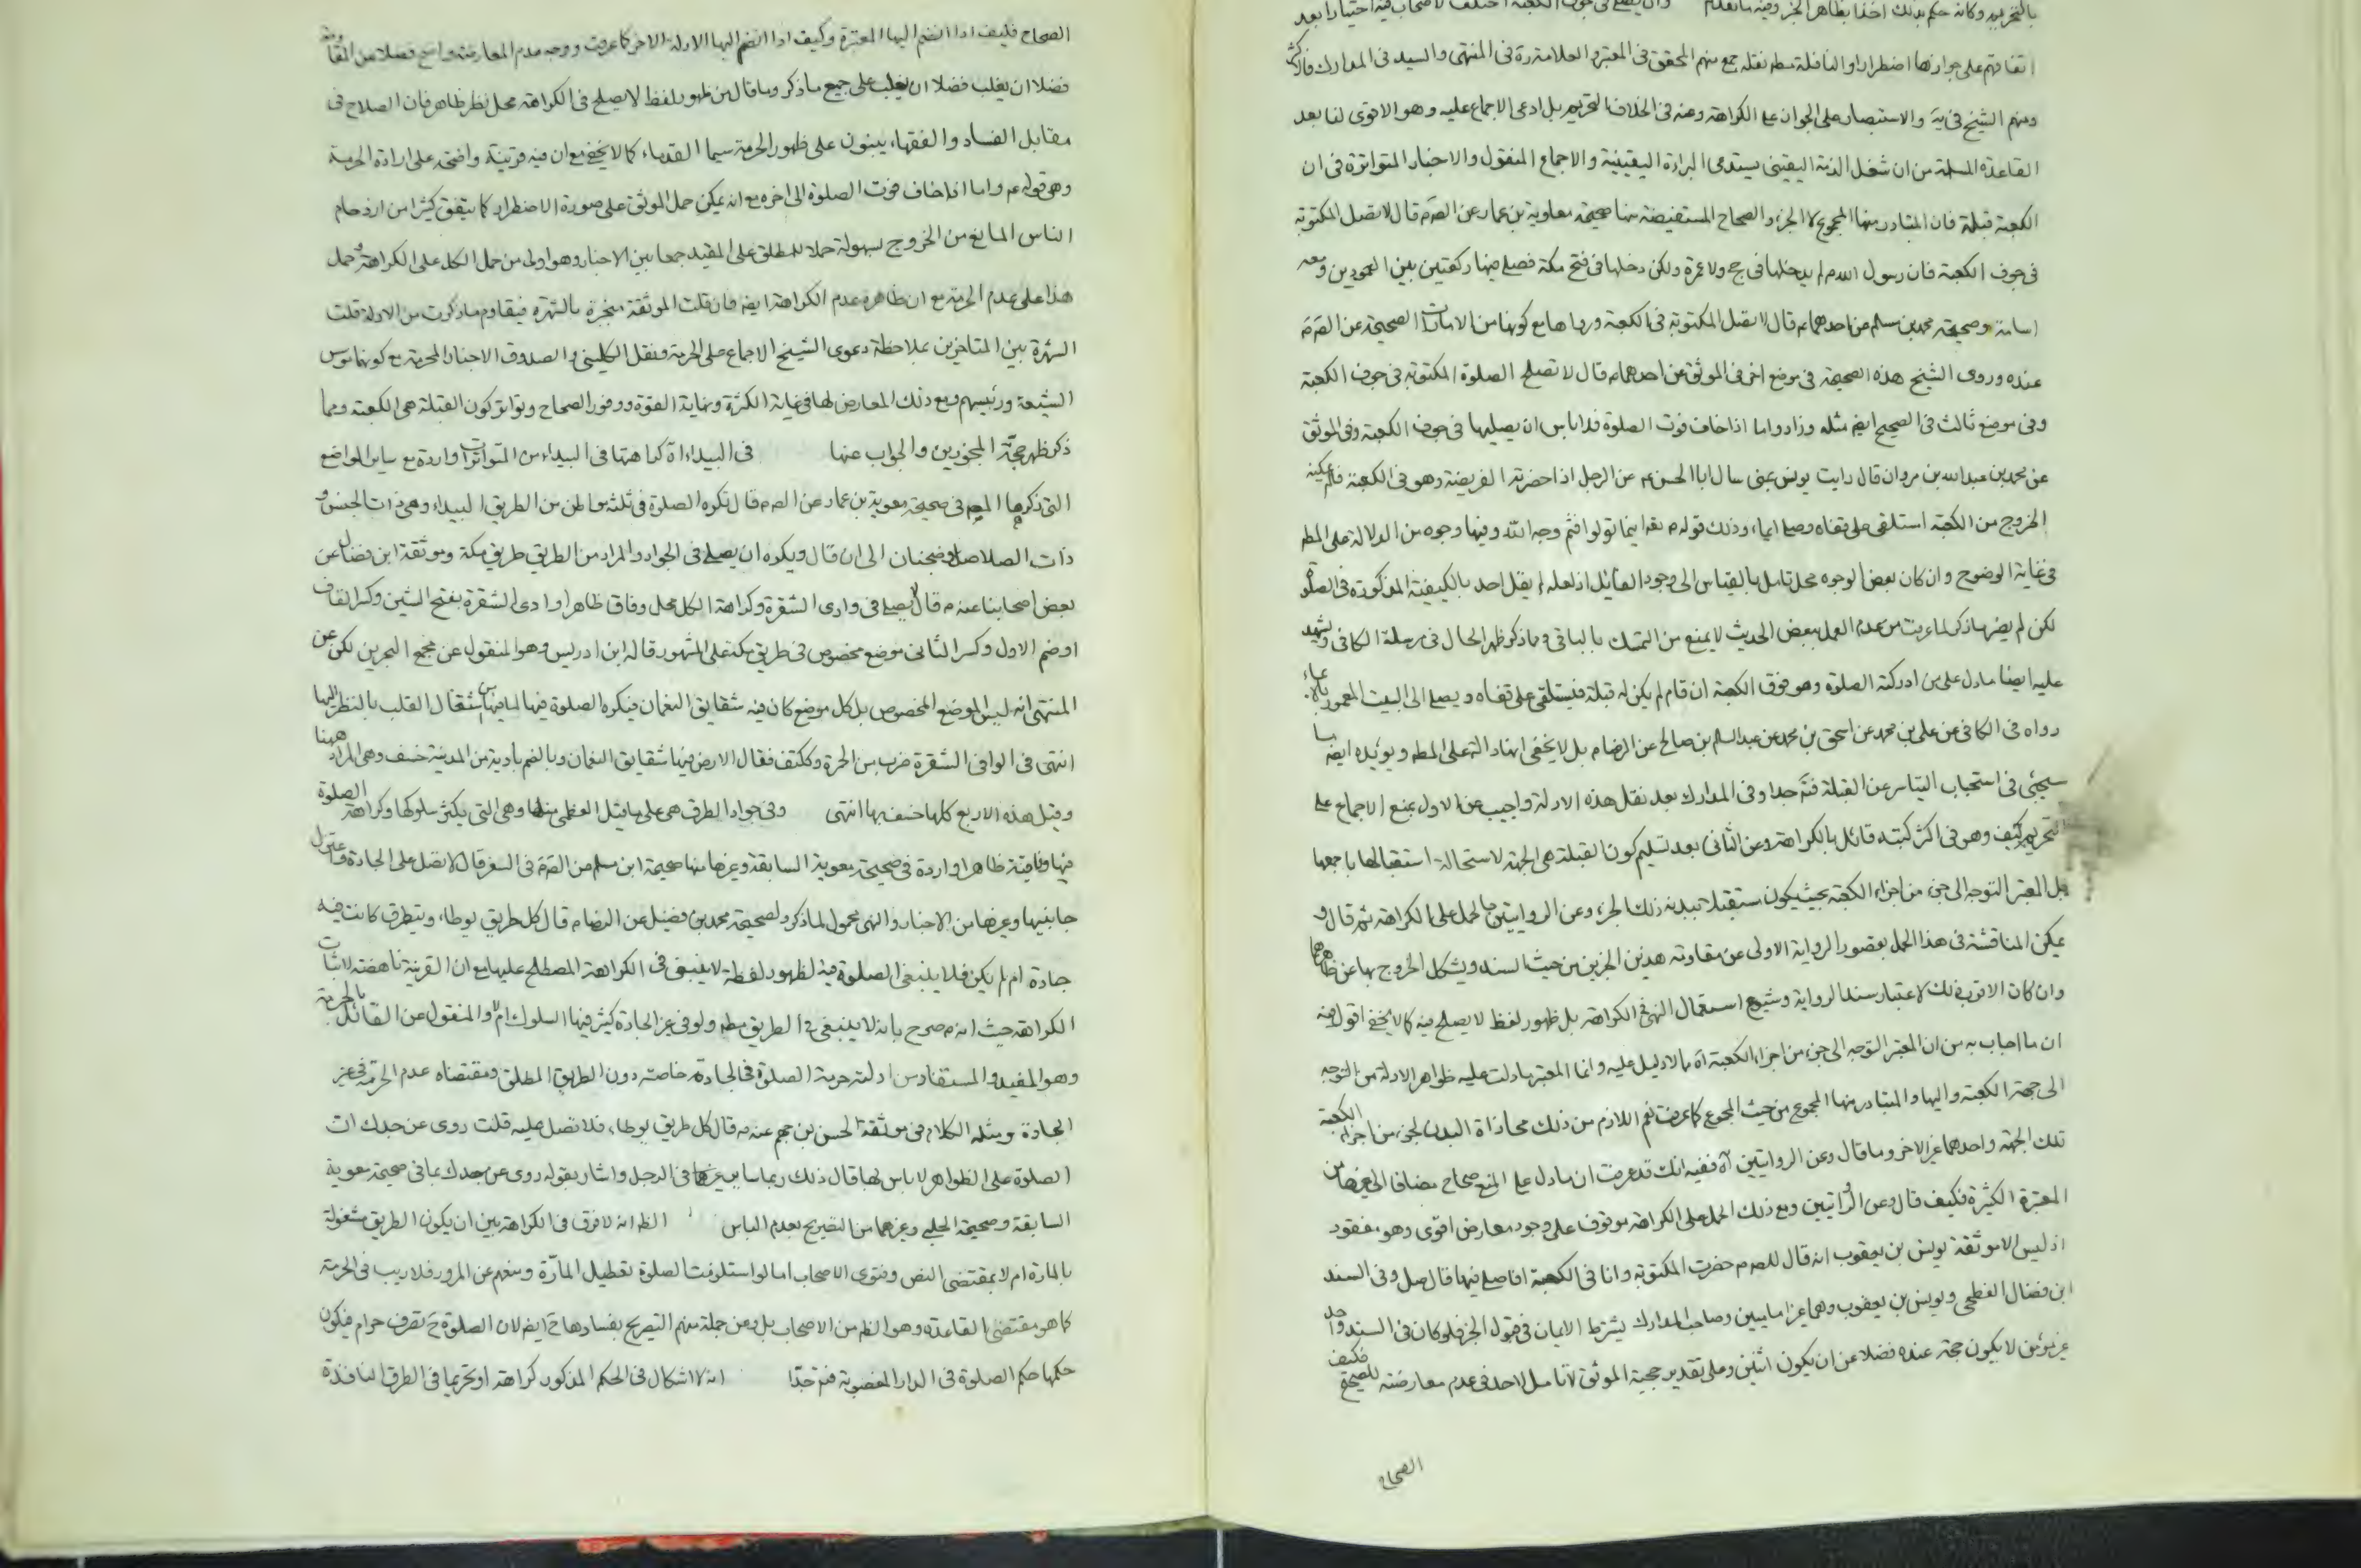 بالتحريم وكانه حكم بذلك اخذا بظاهر الخبر وفيه ما تقدم وان يصلى فى جوف الكعبة اختلف الاصحاب فيه اختيارا بعد
اتفاقهم على جوازها اضطرارا والنافلة مطم نقله جمع منهم المحقق فى المعتبر والعلامة ره فى المنتهى والسيد فى المدارك فالاكثر
ومنهم الشيخ فى يه والاستبصار على الجواز على الكراهة وعنه فى الخلاف التحريم بل ادعى الاجماع عليه وهو الاقوى لنا بعد
القاعدة المسلمة من ان شغل الذمة اليقينى يستدعى البراءة اليقينية والاجماع المنقول والاخبار المتواترة فى ان
الكعبة قبلة فان المتبادر منها المجموع لا الجزء والصحاح المستفيضة منها صحيحة معاوية بن عمار عن الصم قال لا تصل المكتوبة
فى جوف الكعبة فان رسول الله م لم يدخلها فى حج ولا عمرة ولكن دخلها فى فتح مكة فصلى فيها ركعتين بين العمودين ومعه
اسامة وصحيحة محمد بن مسلم عن احدهما م قال لا تصل المكتوبة فى الكعبة ورواها مع كونها من الصحيحة عن الصم
عنده وروى الشيخ هذه الصحيحة فى موضع اخر فى الموثق عن احدهما م قال لا تصلح الصلوة المكتوبة فى جوف الكعبة
وفى موضع ثالث فى الصحيح ايضم مثله وزاد واما اذا خاف فوت الصلوة فلا باس ان يصليها فى جوف الكعبة وفى الموثق
عن محمد بن عبد الله بن مروان قال رايت يونس بمنى سال ابا الحسن م عن الرجل اذا حضرته الفريضة وهو فى الكعبة فلم يمكنه
الخروج من الكعبة استلقى على قفاه وصلى ايماء وذلك قوله تعه اينما تولوا فثم وجه الله وفيها وجوه من الدلالة على المطم
فى غاية الوضوح وان كان بعض الوجوه محل تامل بالقياس الى وجود القائل اذ لعله لم يقل احد بالكيفية المذكورة فى الصلوة
لكن لم يضر ما ذكر لما عرفت من عدم العمل ببعض الحديث لا يمنع من التمسك بالباقى وما ذكر ظهر الحال فى مرسلة الكافى ويشهد
عليه ايضا ما دل على من ادركته الصلوة وهو فوق الكعبة ان قام لم يكن له قبلة فيستلقى على قفاه ويصلى الى البيت المعمور ايماء
رواه فى الكافى عن على بن محمد عن اسحق بن محمد عن عبد السلم بن صالح عن الرضا م بل لا يخفى انها دالة على المطم ويؤيده ايضا ما
سيجئ فى استحباب التياسر عن القبلة فتم جدا وفى المدارك بعد نقل هذه الادلة واجيب عن الاول بمنع الاجماع على
التحريم كيف وهو فى اكثر كتبه قائل بالكراهة وعن الثانى بعد تسليم كون القبلة هى الجهة لاستحالة استقبالها باجمعها
بل المعتبر التوجه الى جزء من اجزاء الكعبة بحيث يكون مستقبلا ببدنه ذلك الجزء وعن الروايتين بالحمل على الكراهة ثم قال و
يمكن المناقشة فى هذا الحمل بقصور الرواية الاولى عن مقاومة هذين الخبرين من حيث السند ويشكل الخروج بها عن ظاهرهما
وان كان الاقرب ذلك لاعتبار سند الرواية وشيوع استعمال النهى فى الكراهة بل ظهور لفظ لا يصلح فيه كما لا يخفى اقول وفيه
ان ما اجاب به من ان المعتبر التوجه الى جزء من اجزاء الكعبة اه مما لا دليل عليه وانما المعتبر ما دلت عليه ظواهر الادلة من التوجه
الى جهة الكعبة واليها والمتبادر منها المجموع من حيث المجموع كما عرفت نعم اللازم من ذلك محاذاة البدن لجزء من اجزاء الكعبة
تلك الجهة واحدهما غير الاخر وما قال وعن الروايتين اه ففيه انك قد عرفت ان ما دل على المنع صحاح مضافا الى غيرها من
المعتبرة الكثيرة فكيف قال وعن الروايتين ومع ذلك الحمل على الكراهة موقوف على وجود معارض اقوى وهو مفقود
اذ ليس الا موثقة يونس بن يعقوب انه قال للصم حضرت المكتوبة وانا فى الكعبة افاصلى فيها قال صل وفى السند
ابن فضال الفطحى ويونس بن يعقوب وهما غير اماميين وصاحب المدارك يشترط الايمان فى قبول الخبر فلو كان فى السند واحد
غير مؤمن لا يكون حجة عنده فضلا عن ان يكون اثنين وعلى تقدير حجية الموثق لا تامل لاحد فى عدم معارضته للصحيح فكيف
الصحاح
الصحاح فكيف اذا انضم اليها المعتبرة وكيف اذا انضم اليها الادلة الاخر كما عرفت ووجه عدم المعارضة واضح فضلا عن المقاومة
فضلا ان يغلب فضلا ان يغلب على جميع ما ذكر وما قال من ظهور لفظ لا يصلح فى الكراهة محل نظر ظاهر فان الصلاح فى
مقابل الفساد والفقهاء يبنون على ظهور الحرمة سيما القدماء كما لا يخفى مع ان فيه قرينة واضحة على ارادة الحرمة
وهو قوله م واما اذا خاف فوت الصلوة الى اخره مع انه يمكن حمل الموثق على صورة الاضطرار كما يتفق كثيرا من ازدحام
الناس المانع من الخروج بسهولة حملا للمطلق على المقيد جمعا بين الاخبار وهو اولى من حمل الكل على الكراهة وحمل
هذا على عدم الحرمة مع ان ظاهره عدم الكراهة ايضم فان قلت الموثقة منجبرة بالشهرة فيقاوم ما ذكرت من الادلة قلت
الشهرة بين المتاخرين بملاحظة دعوى الشيخ الاجماع على الحرمة ونقل الكلينى والصدوق الاخبار المحرمة مع كونهما من
الشيعة ورئيسهم ومع ذلك المعارض لها فى غاية الكثرة ونهاية القوة ووفور الصحاح وتواتر كون القبلة هى الكعبة ومما
ذكر ظهر حجة المجوزين والجواب عنها فى البيداء اه كراهتها فى البيداء من المتواترات واردة مع ساير المواضع
التى ذكرها المصم فى صحيحة معوية بن عمار عن الصم قال تكره الصلوة فى ثلثة مواطن من الطريق البيداء وهى ذات الجيش و
ذات الصلاصل وضجنان الى ان قال ويكره ان يصلى فى الجواد والمراد من الطريق طريق مكة وموثقة ابن فضال عن
بعض اصحابنا عنه م قال لا يصلى فى وادى الشقرة وكراهة الكل محل وفاق ظاهرا وادى الشقرة بفتح الشين وكسر القاف
او ضم الاول وكسر الثانى موضع مخصوص فى طريق مكة على المشهور قاله ابن ادريس وهو المنقول عن مجمع البحرين لكن عن
المنتهى انه ليس الموضع المخصوص بل كل موضع كان فيه شقايق النعمان فيكره الصلوة فيها لما فيها من اشتغال القلب بالنظر اليها
انتهى فى الوافى الشقرة ضرب من الحمرة وككتف فقال الارض فيها شقايق النعمان وبالضم بادية من المدينة خسف وهى المراد ههنا
وقيل هذه الاربع كلها خسف بها انتهى وفى جواد الطرق هى على ما قيل العظمى منها وهى التى يكثر سلوكها وكراهة الصلوة
فيها وفاقية ظاهرا واردة فى صحيحة معوية السابقة وغيرها منها صحيحة ابن مسلم عن الصم فى السفر قال لا تصل على الجادة واعتزل
جانبيها وغيرها من الاخبار والنهى محمول لما ذكر ولصحيحة محمد بن فضيل عن الرضا م قال كل طريق يوطاء ويتطرق كانت فيه
جادة ام لم يكن فلا ينبغى الصلوة فيه لظهور لفظة لا ينبغى فى الكراهة المصطلح عليها مع ان القرينة ناهضة لاثبات
الكراهة حيث انه م صرح بانه لا ينبغى فى الطريق مطم ولو فى غير الجادة كثير فيها السلوك ام لا والمنقول عن القائل بالحرمة
وهو المفيد والمستفاد من ادلته حرمة الصلوة فى الجادة خاصة دون الطريق المطلق ومقتضاه عدم الحرمة فى غير
الجادة ومثله الكلام فى موثقة الحسن بن جهم عنه م قال كل طريق يوطاء فلا تصل عليه قلت روى عن جدك ان
الصلوة على الظواهر لا باس لها قال ذلك ربما سايرنى فى الرجل واشار بقوله روى عن جدك بما فى صحيحة معوية
السابقة وصحيحة الحلبى وغيرهما من التصريح بعدم الباس الظم انه لا فرق فى الكراهة بين ان يكون الطريق مشغولة
بالمارة ام لا بمقتضى النص وفتوى الاصحاب اما لو استلزمت الصلوة تعطيل المارة ومنعهم عن المرور فلا ريب فى الحرمة
كما هو مقتضى القاعدة وهو الظم من الاصحاب بل وعن جملة منهم التصريح بفسادها ح ايضم لان الصلوة ح تصرف حرام فيكون
حكمها حكم الصلوة فى الدار المغصوبة فتم جدا انه لا اشكال فى الحكم المذكور كراهة او تحريما فى الطرق النافذة